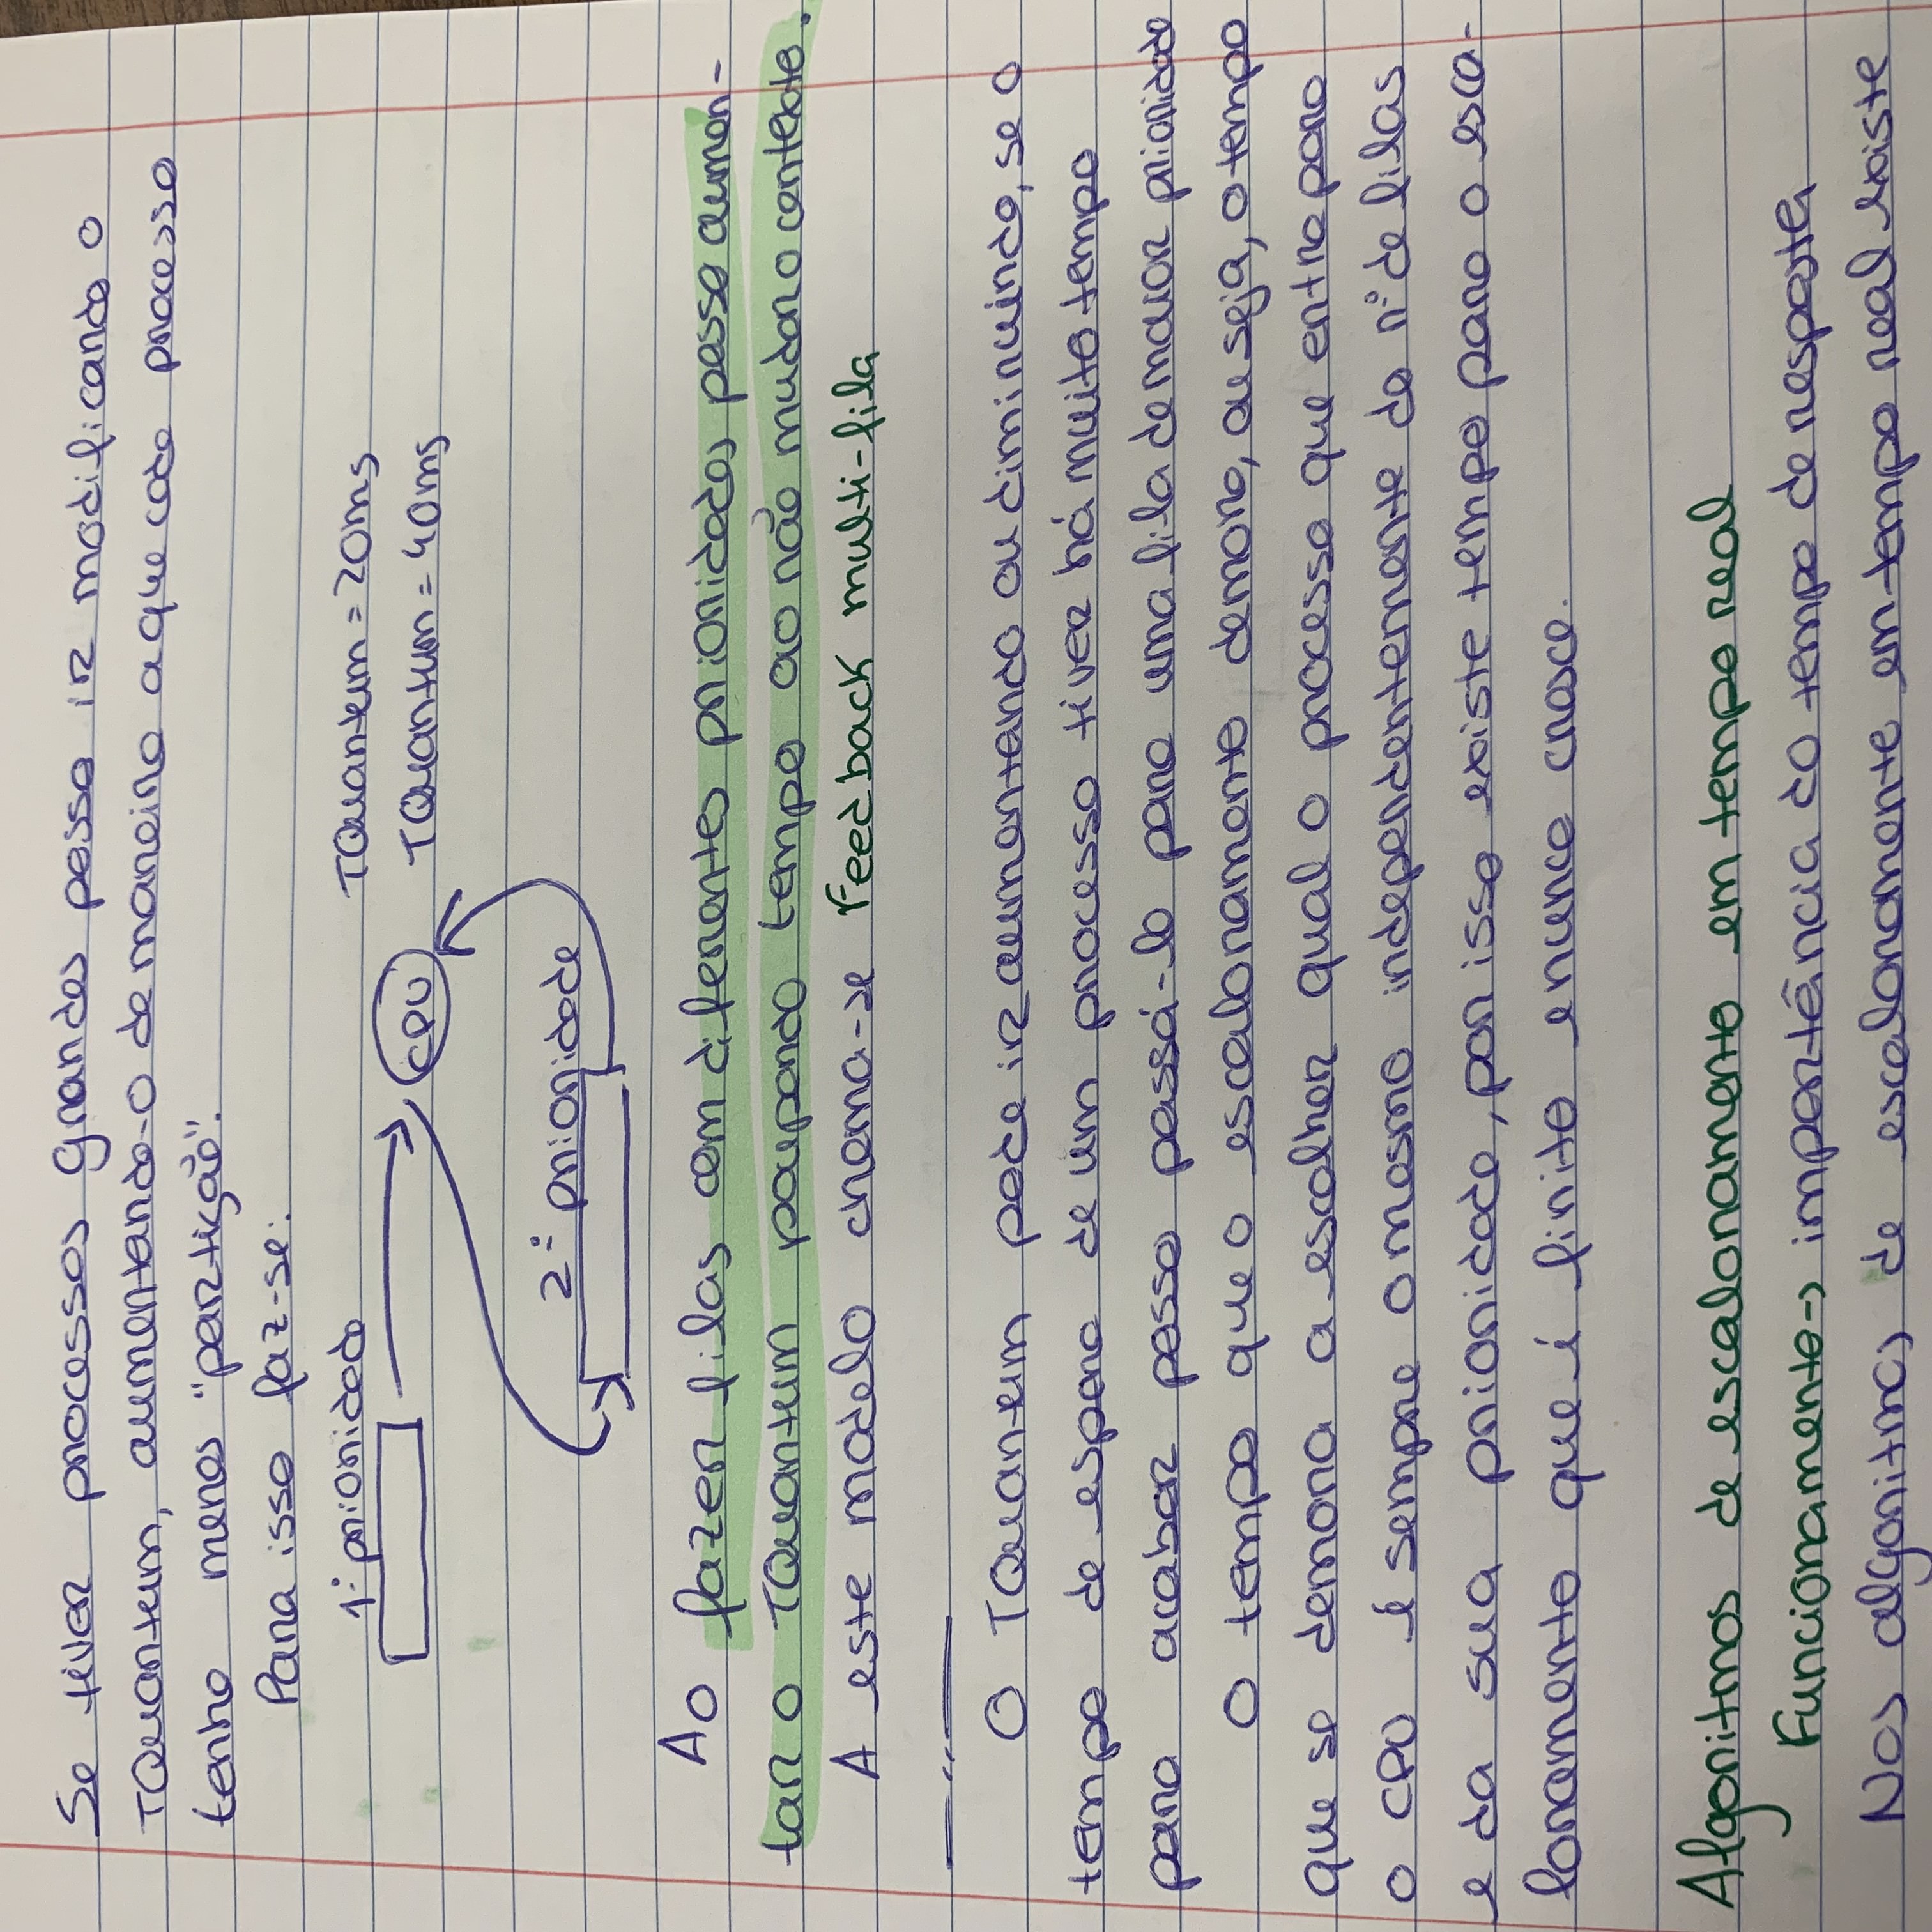 Se tiver processos grandes posso ir modificando o
TQuantum, aumentando-o de maneira a que cada processo
tenha menos "partição".
Para isso faz-se:
1ª prioridade
TQuantum = 20ms
CPU
TQuantum = 40ms
2ª prioridade
Ao fazer filas com diferentes prioridades posso aumen-
tar o TQuantum poupando tempo ao não mudar o contexto.
A este modelo chama-se Feedback multi-fila
O TQuantum pode ir aumentando ou diminuindo, se o
tempo de espera de um processo tiver há muito tempo
para acabar posso passá-lo para uma fila de maior prioridade
O tempo que o escalonamento demora, ou seja, o tempo
que se demora a escolher qual o processo que entra para
o CPU é sempre o mesmo independentemente do nº de filas
e da sua prioridade, por isso existe tempo para o esca-
lonamento que é finito e nunca cresce.
Algoritmos de escalonamento em tempo real
Funcionamento → importância do tempo de resposta
Nos algoritmos de escalonamento em tempo real existe